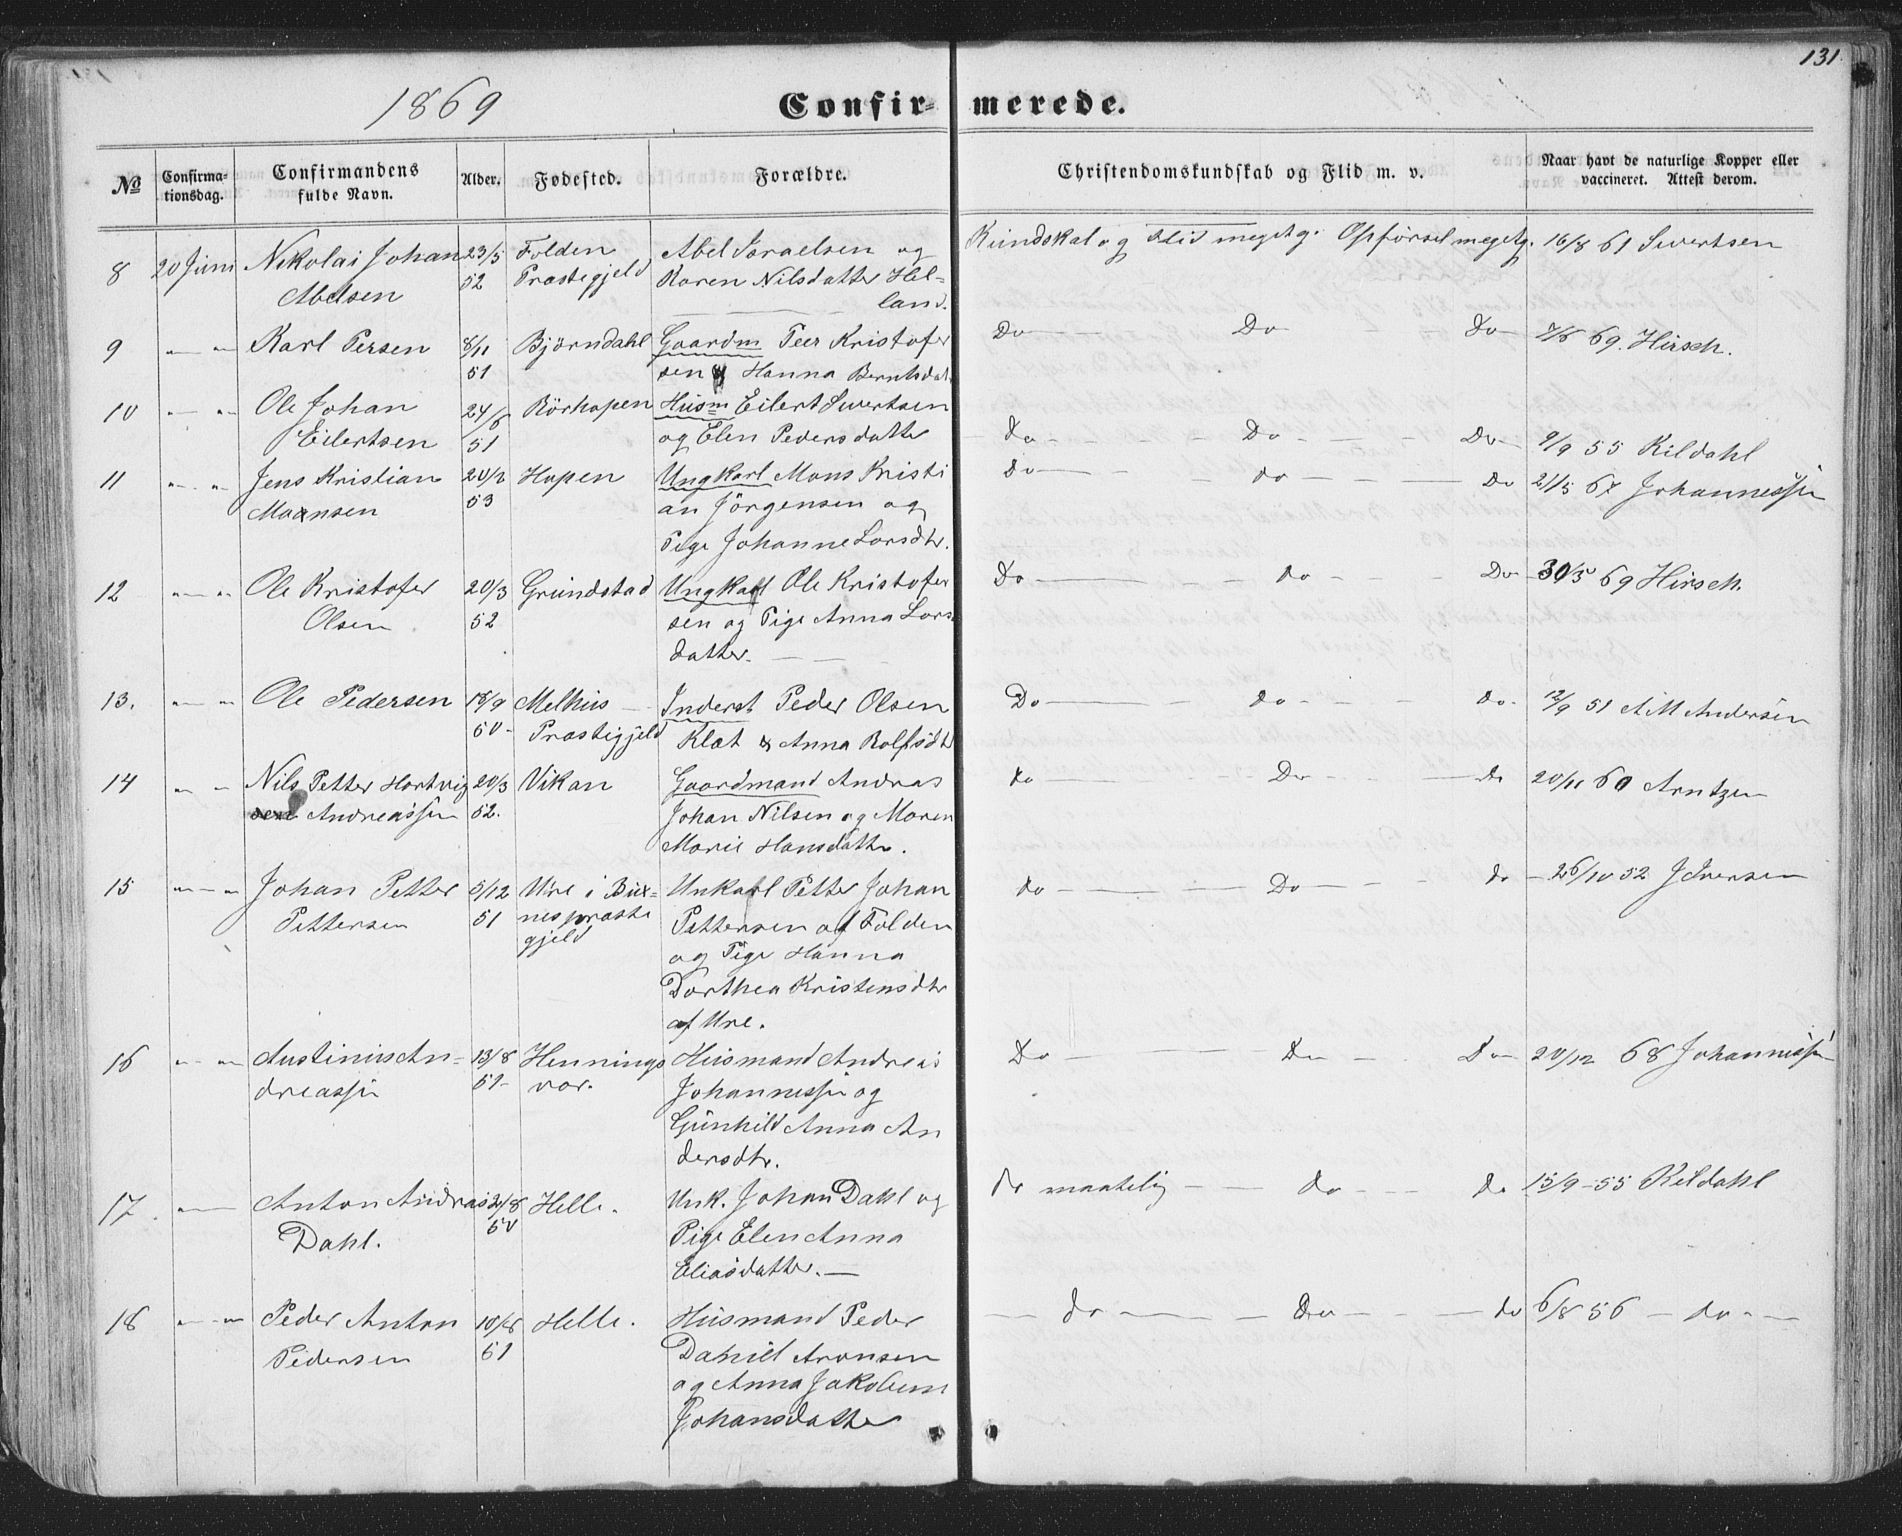 131
1869 Confir- merede.
No Confirma- tionsdag. Confirmandens fulde Navn. Alder. Fødested. Forældre. Christendomskundskab og Flid m. v. Naar havt de naturlige Kopper eller vaccineret. Attest derom.
8 20 Juni Nikolai Johan 23/5 Folden Abel Israelsen og Kundskab og Flid megetg. Opførsel megetg. 16/8 61 Sivertsen
Abelsen 52 Præstegjeld Karen Nilsdatter Hel-
land.
9 " " Karl Persen 8/11 Björndahl Gaardm Peer Kristofer Do Do Do 7/6 69. Hirsch.
51 sen & Hanna Berntsdat.
10 " " Ole Johan 24/6 Rörhopen Husm Eilert Sivertsen
Eilertsen 51 og Elen Pedersdatter do Do Do 9/9 55 Kildahl
11 " " Jens Kristian 20/2 Hopen Ungkarl Mons Kristi Do do Do 21/5 67 Johannessen
Monsen 53 an Jörgensen og
Pige Johanne Larsdtr.
12 " " Ole Kristofer 20/3 Grundstad Ungkarl Ole Kristofer Do do Do 30/5 69 Hirsch.
Olsen 52 sen og Pige Anna Lars
datter.
13. " " Ole Pedersen 18/9 Melhus Inderst Peder Olsen Do do do 12/9 51 A M Andersen
50 Præstegjeld Klæt & Anna Rolfsdtr
14 " " Nils Petter Hartvig 20/3 Vikan Gaardmand Andras do Do do 20/11 60 Arntzen
Andreassen 52. Johan Nilsen og Maren
Marie Hansdatter.
15 " " Johan Petter 5/12 Ure i Bux- Unkarl Petter Johan do Do do 26/10 52 J Iversen
Pettersen 51 nes præste Pettersen af Folden
gjeld og Pige Hanna
Dorthea Kristensdtr
af Ure.
16 " " Austinius An- 13/8 Hennings Husmand Andreas Do Do Do 20/12 68 Johannessen
dreassen 51 vær. Johannessen og
Gunhild Anna An
dersdtr.
17. " Anton Andreas 21/8 Helle. Unk. Johan Dahl og do maatelig do do 15/9 55 Kildahl
Dahl. 50 Pige Elen Anna
Eliasdatter.
18 " " Peder Anton 10/8 Helle. Husmand Peder do Do do 6/8 56 do
Pedersen 51 Daniel Aronsen
og Anna Jakobine
Johansdatter